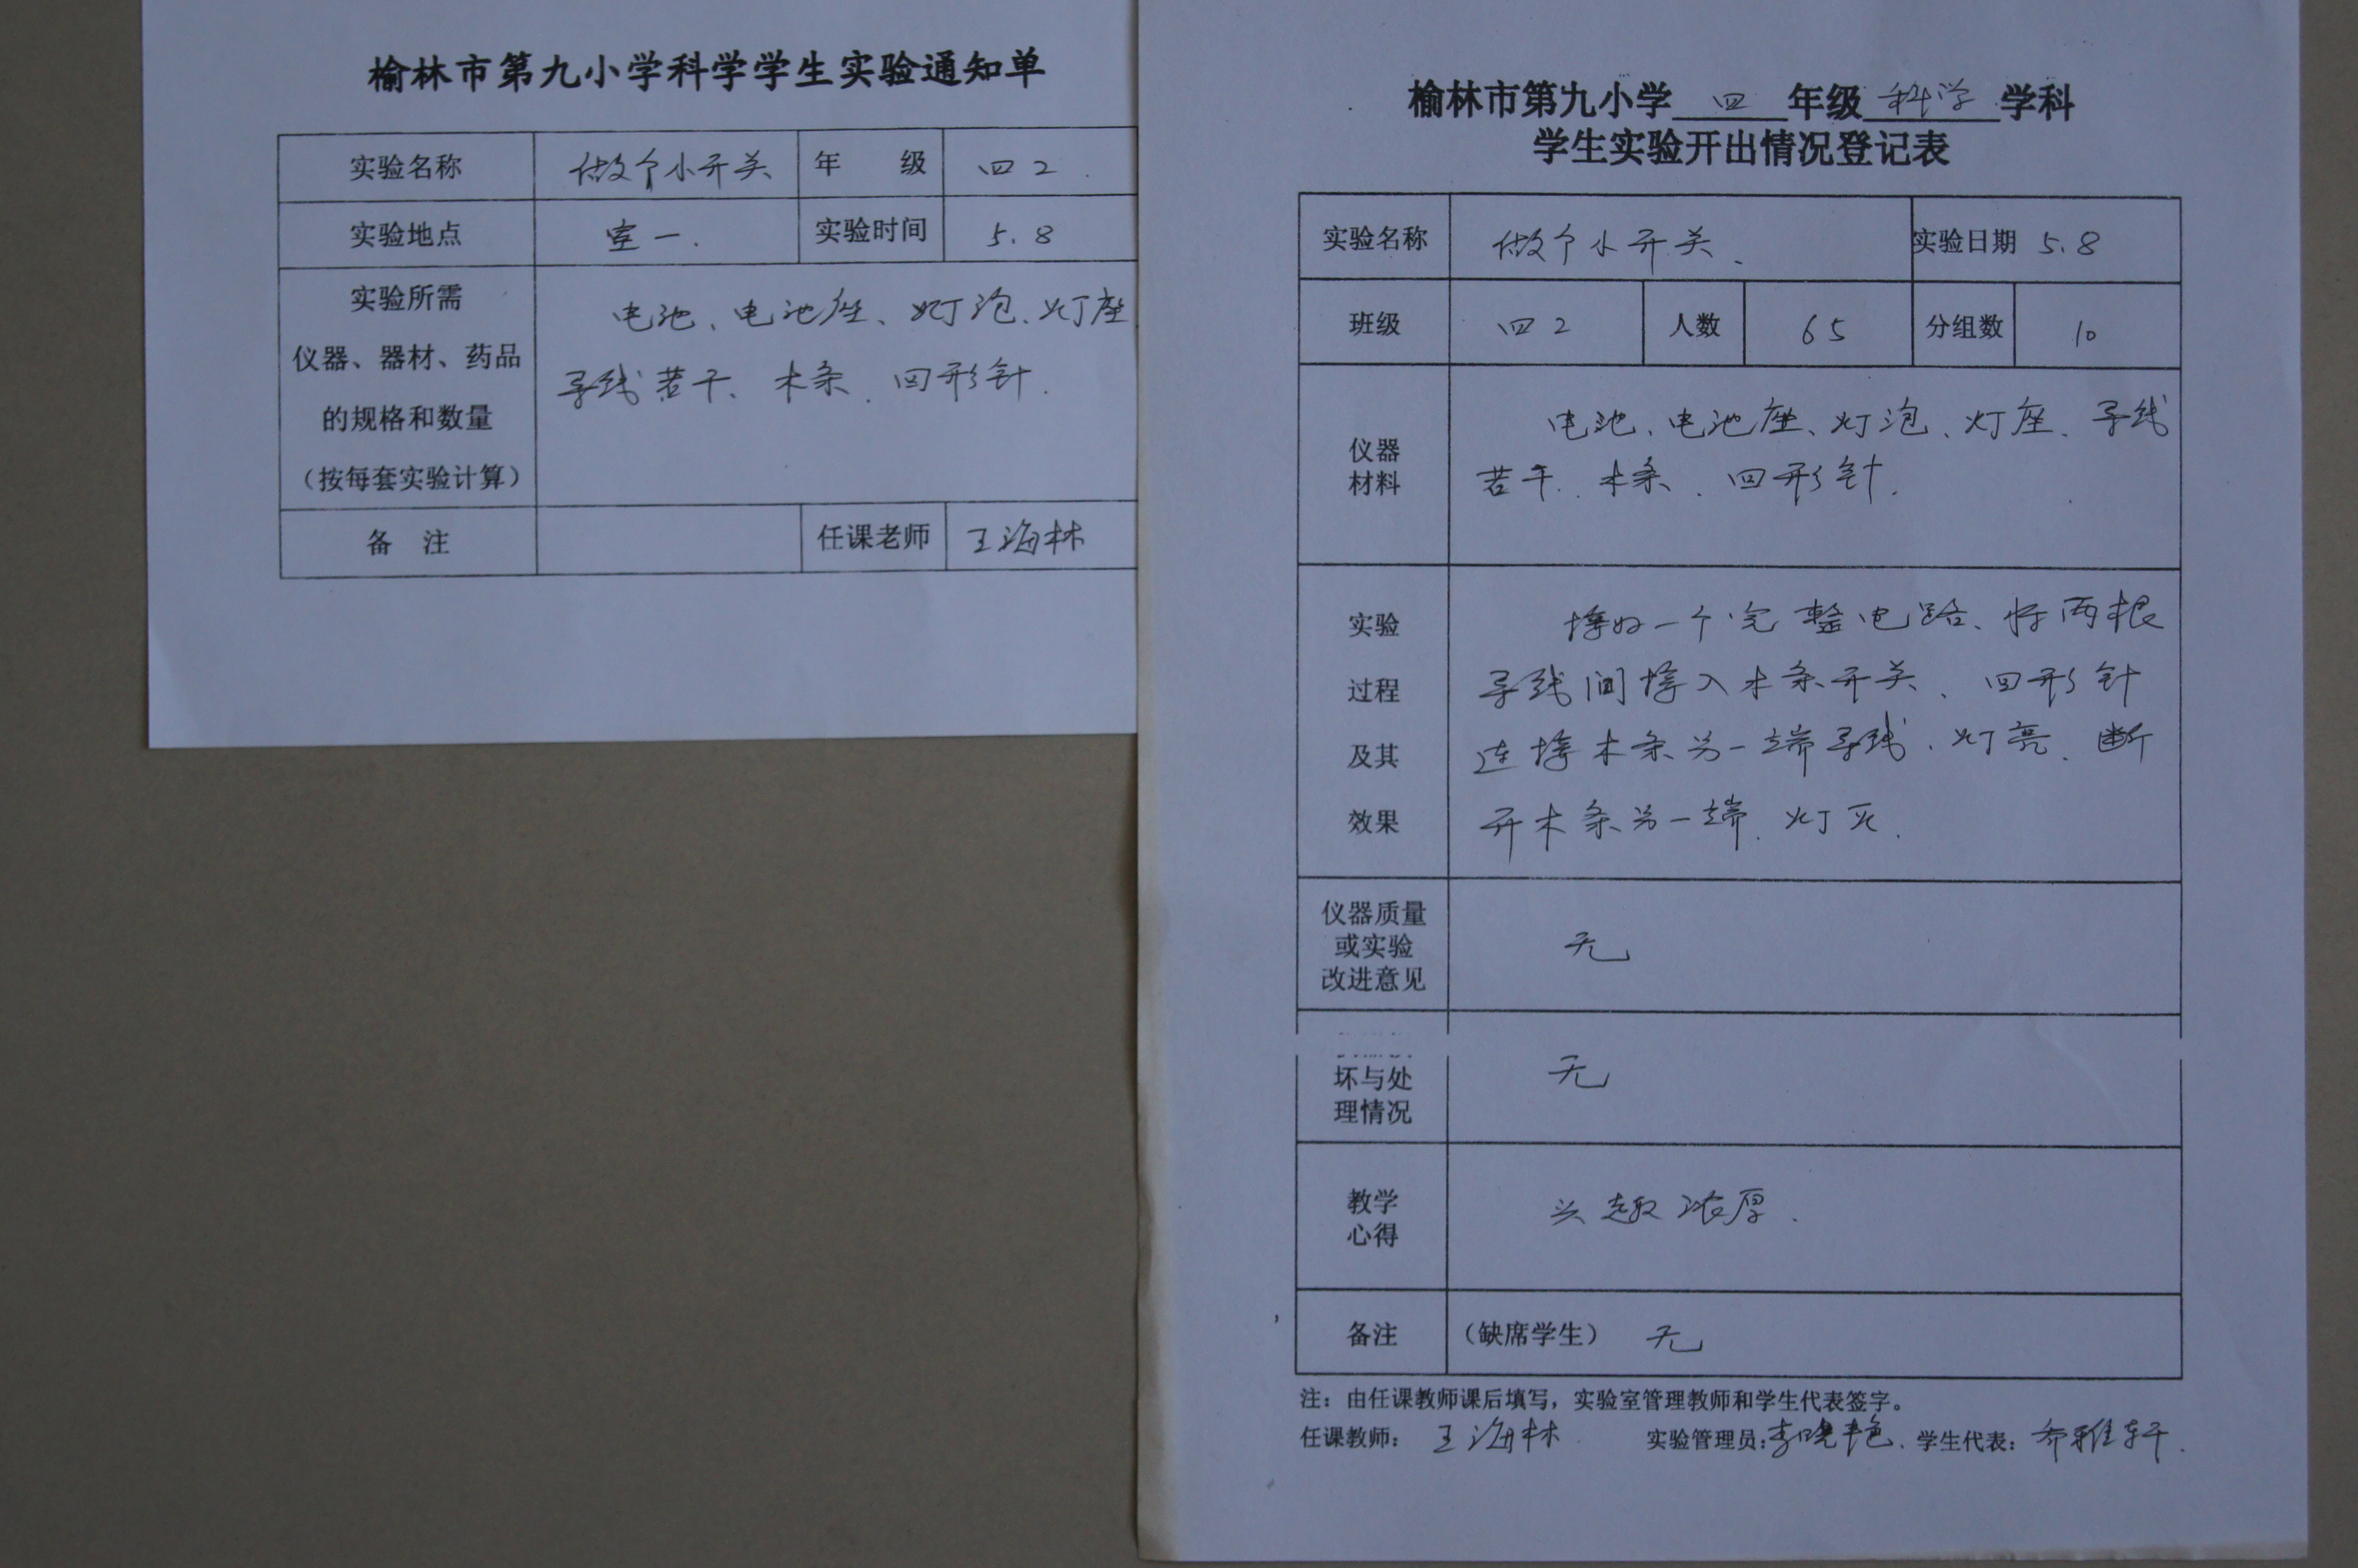 榆林市第九小学科学学生实验通知单
实验名称 做个小开关 年 级 四2
实验地点 室一. 实验时间 5.8
实验所需
仪器、器材、药品
的规格和数量
（按每套实验计算）
电池、电池座、灯泡、灯座
导线若干、木条、回形针.
备 注 任课老师 王海林
榆林市第九小学 四 年级 科学 学科
学生实验开出情况登记表
实验名称 做个小开关、 实验日期 5.8
班级 四2 人数 65 分组数 10
仪器
材料
电池、电池座、灯泡、灯座、导线
若干、木条、回形针.
实验
过程
及其
效果
接好一个完整电路、将两根
导线间接入木条开关、回形针
连接木条另一端导线、灯亮、断
开木条另一端、灯灭.
仪器质量
或实验
改进意见
无
坏与处
理情况
无
教学
心得
兴趣浓厚.
备注 （缺席学生） 无
注：由任课教师课后填写，实验室管理教师和学生代表签字。
任课教师： 王海林 实验管理员：李晓艳. 学生代表： 乔雅轩.